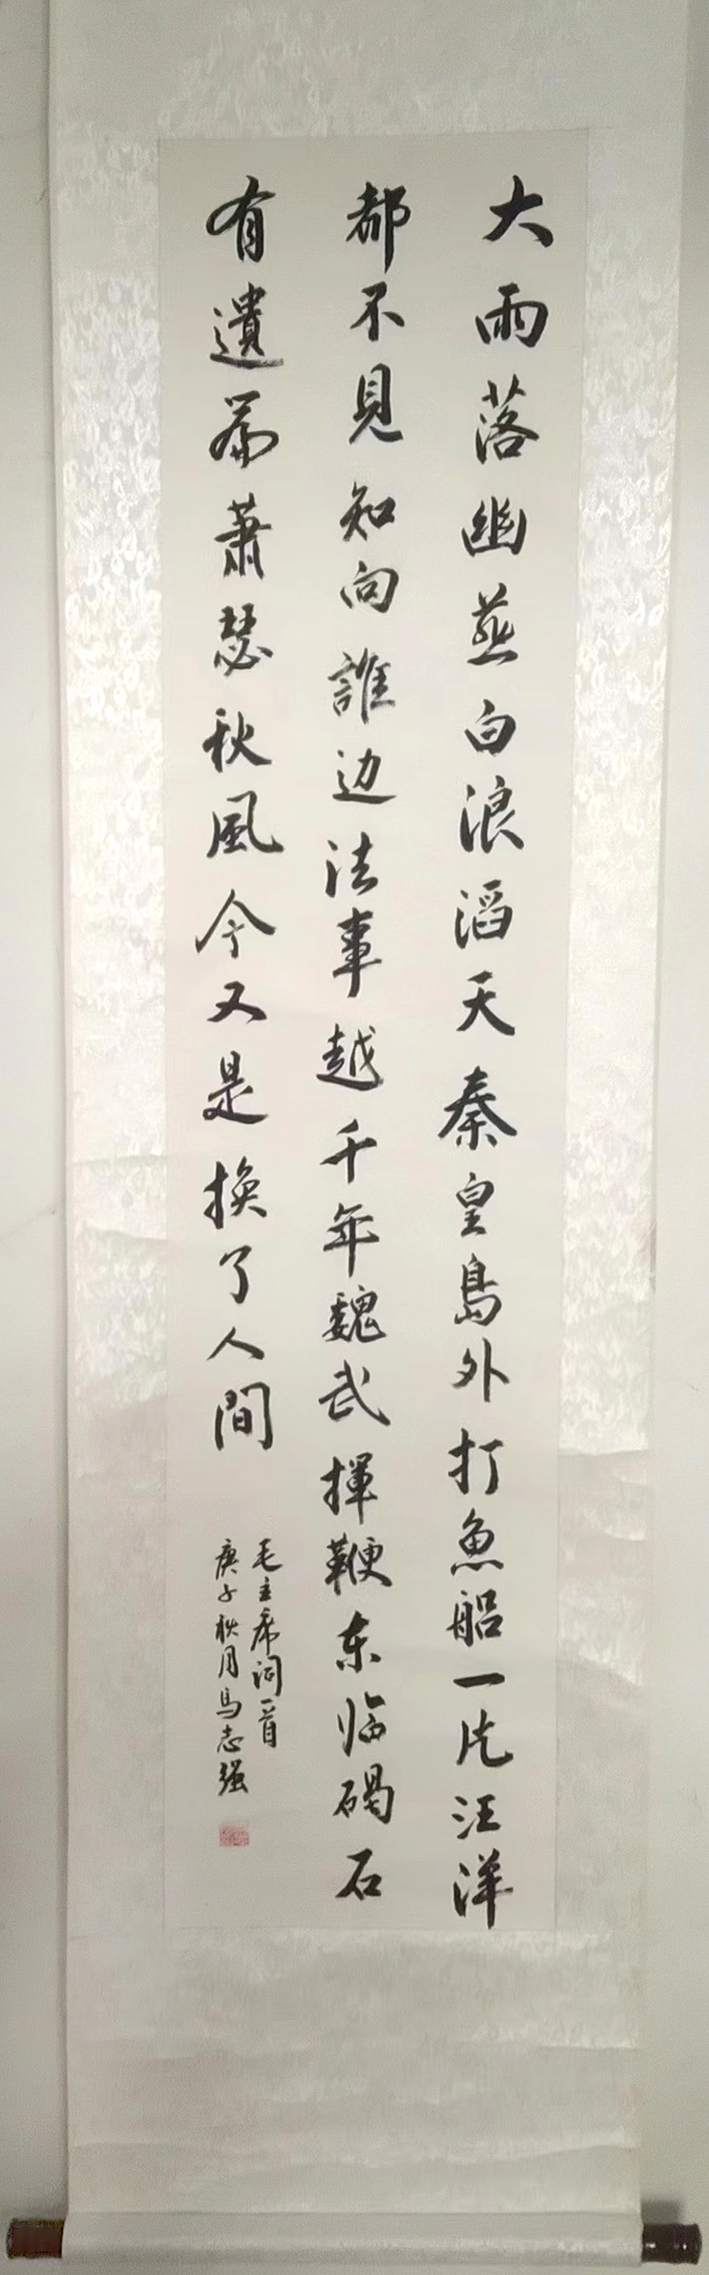 大雨落幽燕白浪滔天秦皇島外打魚船一片汪洋
都不見知向誰边往事越千年魏武揮鞭东临碣石
有遺篇萧瑟秋風今又是换了人間
毛主席词一首
庚子秋月马志强